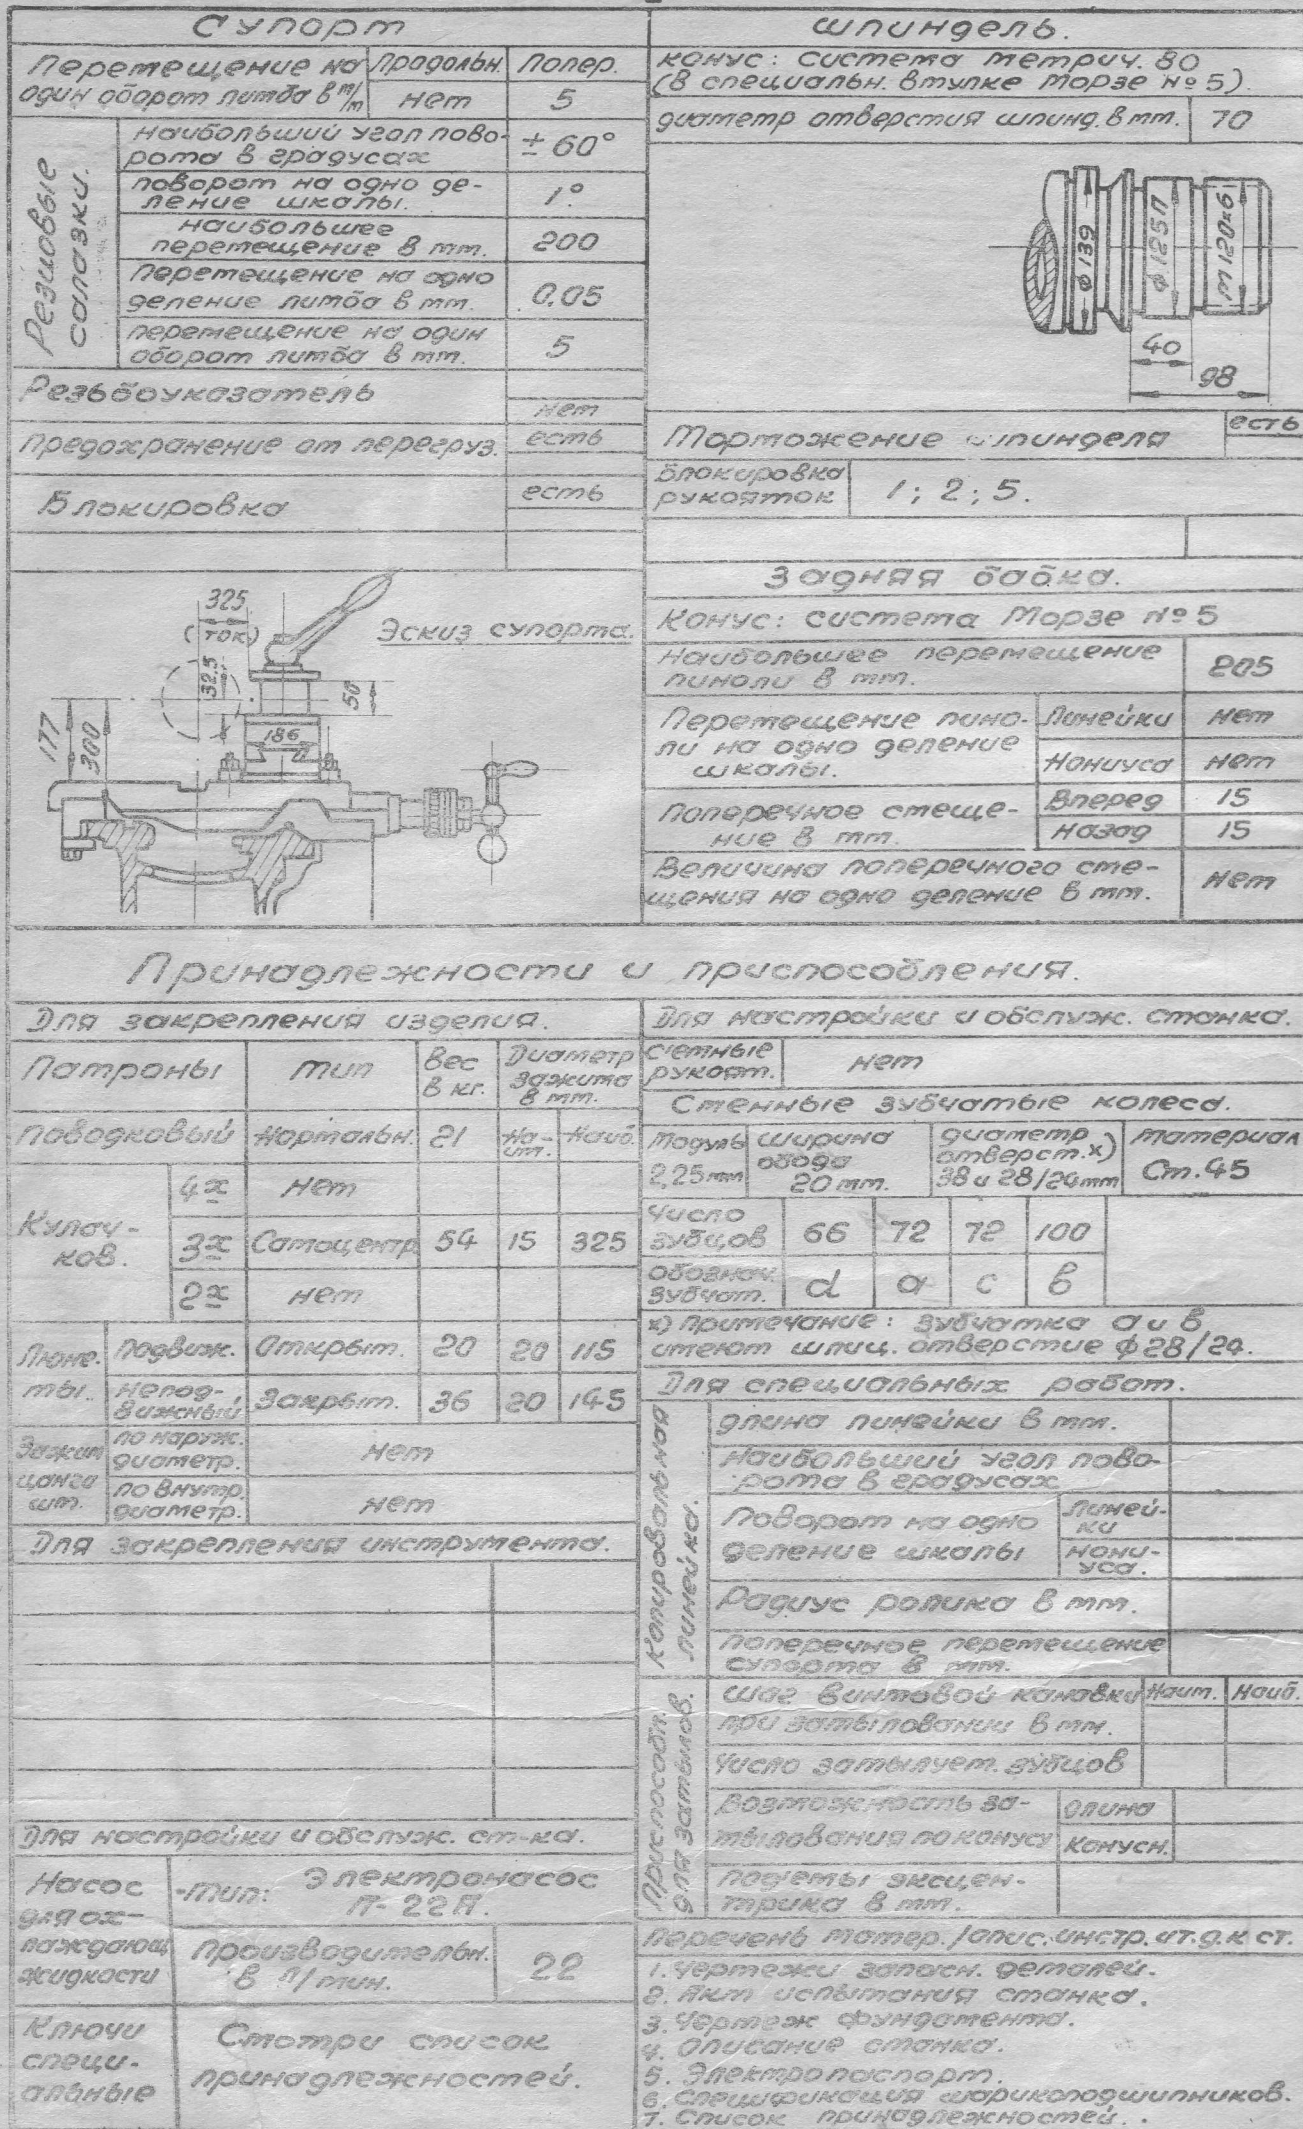 Супорт
Перемещение на
один оборот лимба в м/м
Продольн.
Попер.
нет
5
Резцовые
салазки.
наибольший угол пово-
рота в градусах
± 60°
поворот на одно де-
ление шкалы.
1°
наибольшее
перемещение в мм.
200
перемещение на одно
деление лимба в мм.
0,05
перемещение на один
оборот лимба в мм.
5
Резьбоуказатель
нет
Предохранение от перегруз.
есть
Блокировка
есть
325
(ток)
Эскиз супорта.
32,5
50
186
177
300
шпиндель.
конус: система метрич. 80
(в специальн. втулке Морзе № 5).
диаметр отверстия шпинд. в мм.
70
ф 139
ф 125П
М 120x6
40
98
Торможение шпинделя
есть
Блокировка
рукояток
1; 2; 5.
Задняя бабка.
Конус: система Морзе № 5
Наибольшее перемещение
пиноли в мм.
205
Перемещение пино-
ли на одно деление
шкалы.
Линейки
нет
Нониуса
нет
Поперечное смеще-
ние в мм.
Вперед
15
Назад
15
Величина поперечного сме-
щения на одно деление в мм.
нет
Принадлежности и приспособления.
Для закрепления изделия.
Патроны
Тип
Вес
в кг.
Диаметр
зажима
в мм.
Поводковый
Нормальн.
21
На-
им.
Наиб.
Кулач-
ков.
4х
нет
3х
Самоцентр.
54
15
325
2х
нет
Люне-
ты.
Подвиж.
Открыт.
20
20
115
Непод-
вижный
Закрыт.
36
20
145
Зажим
цанга
шт.
по наруж.
диаметр.
нет
по внутр.
диаметр.
нет
Для закрепления инструмента.
Для настройки и обслуж. ст-ка.
Насос
для ох-
лаждающ
жидкости
-Тип:
Электронасос
П-22П.
Производительн.
в л/мин.
22
Ключи
специ-
альные
Смотри список
принадлежностей.
Для настройки и обслуж. станка.
Счетные
рукоят.
нет
Сменные зубчатые колеса.
Модуль
2,25мм
ширина
обода
20 мм.
диаметр
отверст. х)
38 и 28/24мм
материал
Ст. 45
Число
зубцов
66
72
72
100
Обознач.
зубчат.
d
a
c
в
х) Примечание: зубчатка а и в
имеют шлиц. отверстие ф 28/24.
Для специальных работ.
Копировальная
линейка.
длина линейки в мм.
наибольший угол пово-
рота в градусах
Поворот на одно
деление шкалы
линей-
ки
нони-
уса.
Радиус ролика в мм.
поперечное перемещение
супорта в мм.
Приспособл.
для затылов.
шаг винтовой канавки
при затыловании в мм.
Наим.
Наиб.
Число затылует. зубцов
Возможность за-
тылования по конусу
Длина
Конусн.
Подъемы эксцен-
трика в мм.
перечень матер./опис. инстр. ит.д. к ст.
1. Чертежи запасн. деталей.
2. Акт испытания станка.
3. Чертеж фундамента.
4. Описание станка.
5. Электропаспорт.
6. Спецификация шарикоподшипников.
7. Список принадлежностей.